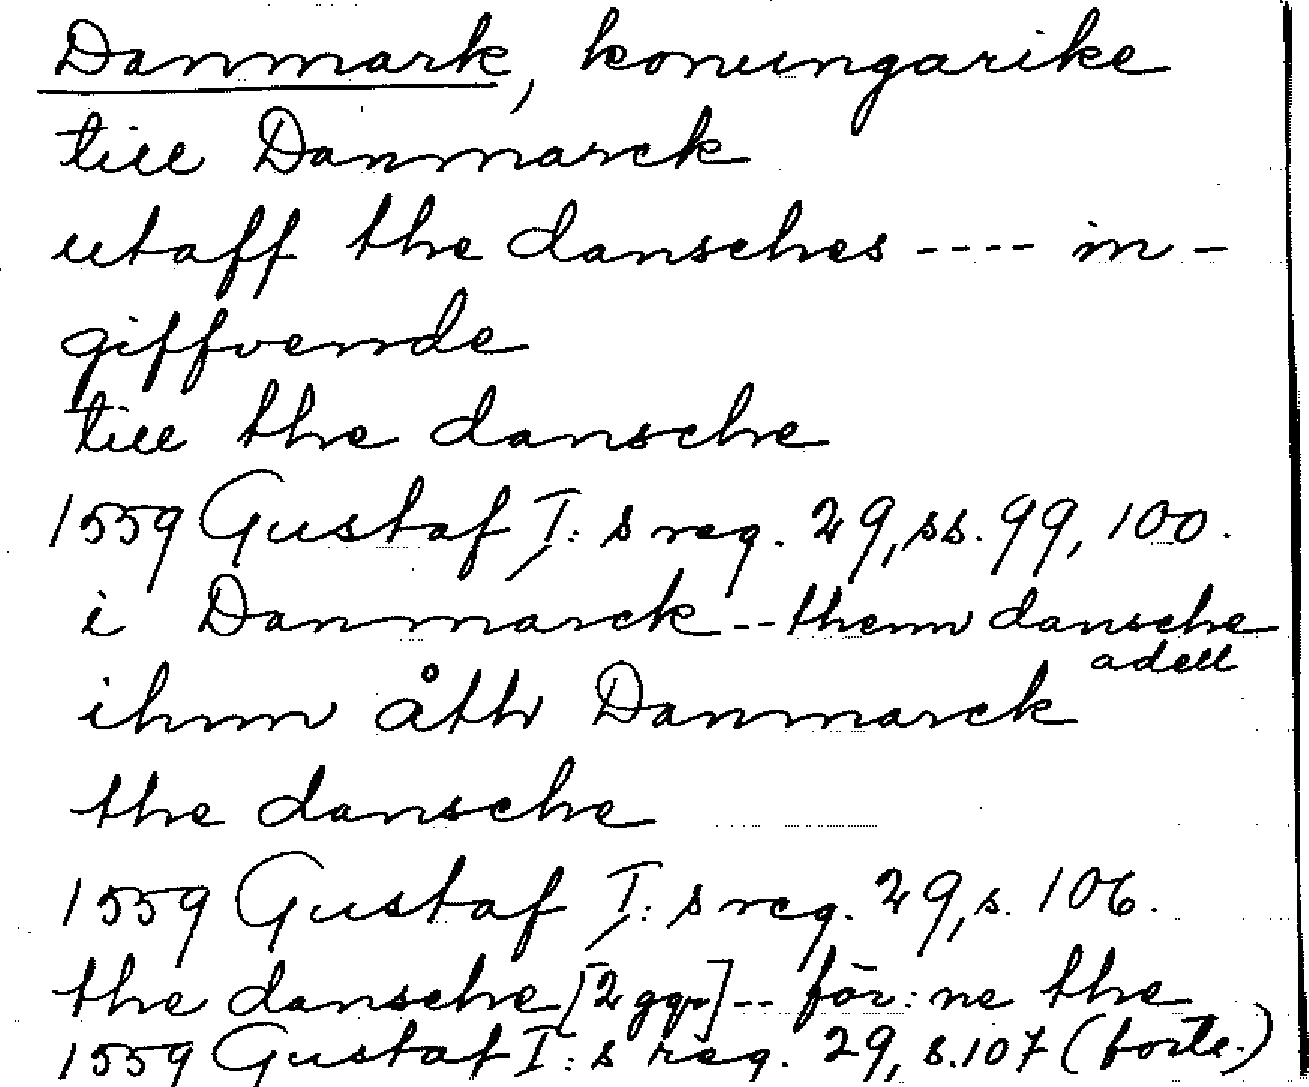 Danmark, konungarike
till Danmarck
utaff the dansches ---- in-
giffvende
till the dansche
1559 Gustaf I:s reg. 29, ss. 99, 100.
i Danmarck -- thenn dansche
adell
ihnn åth Danmarck
the dansche
1559 Gustaf I:s reg. 29, s. 106.
the dansche [2 ggr] -- för:ne the
1559 Gustaf I:s reg. 29, s. 107 (forts.)